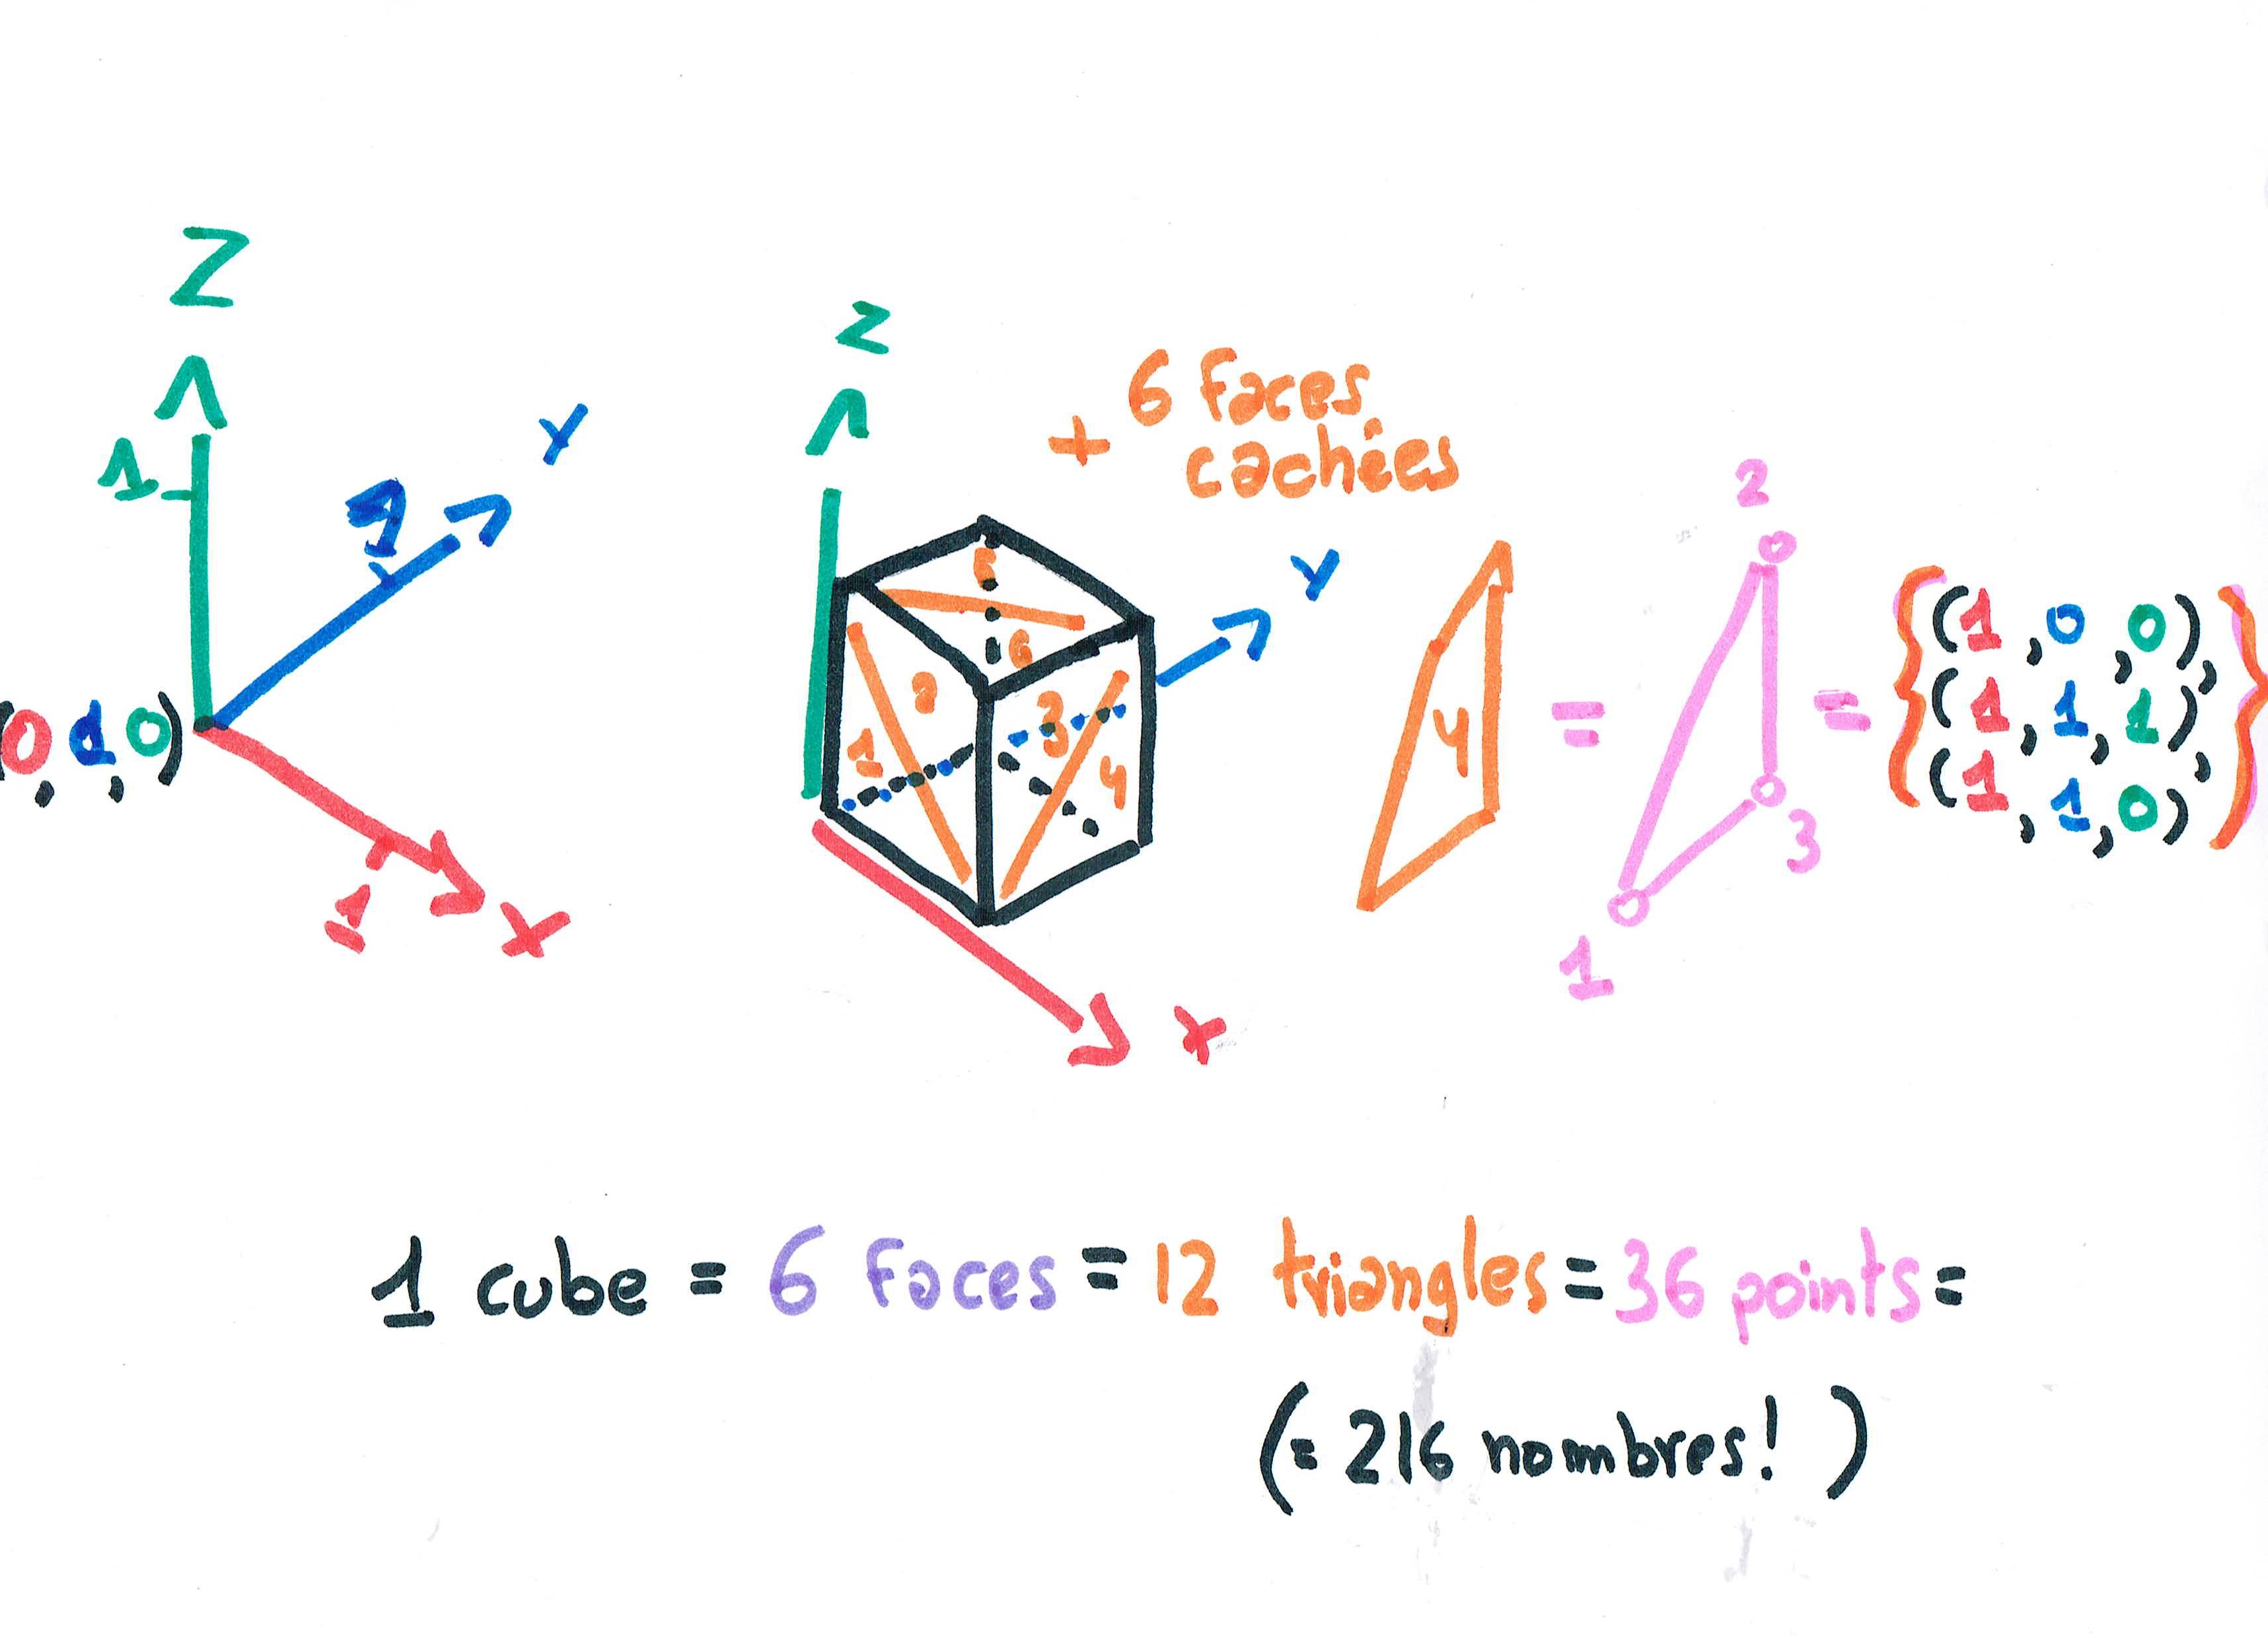 Z
1
1
Y
(0,1,0)
1
X
Z
+ 6 faces
cachées
Y
5
6
2
1
3
4
X
4
=
2
1
3
=
{(1,0,0),
(1,1,1),
(1,1,0)}
1 cube = 6 faces = 12 triangles = 36 points =
(= 216 nombres! )